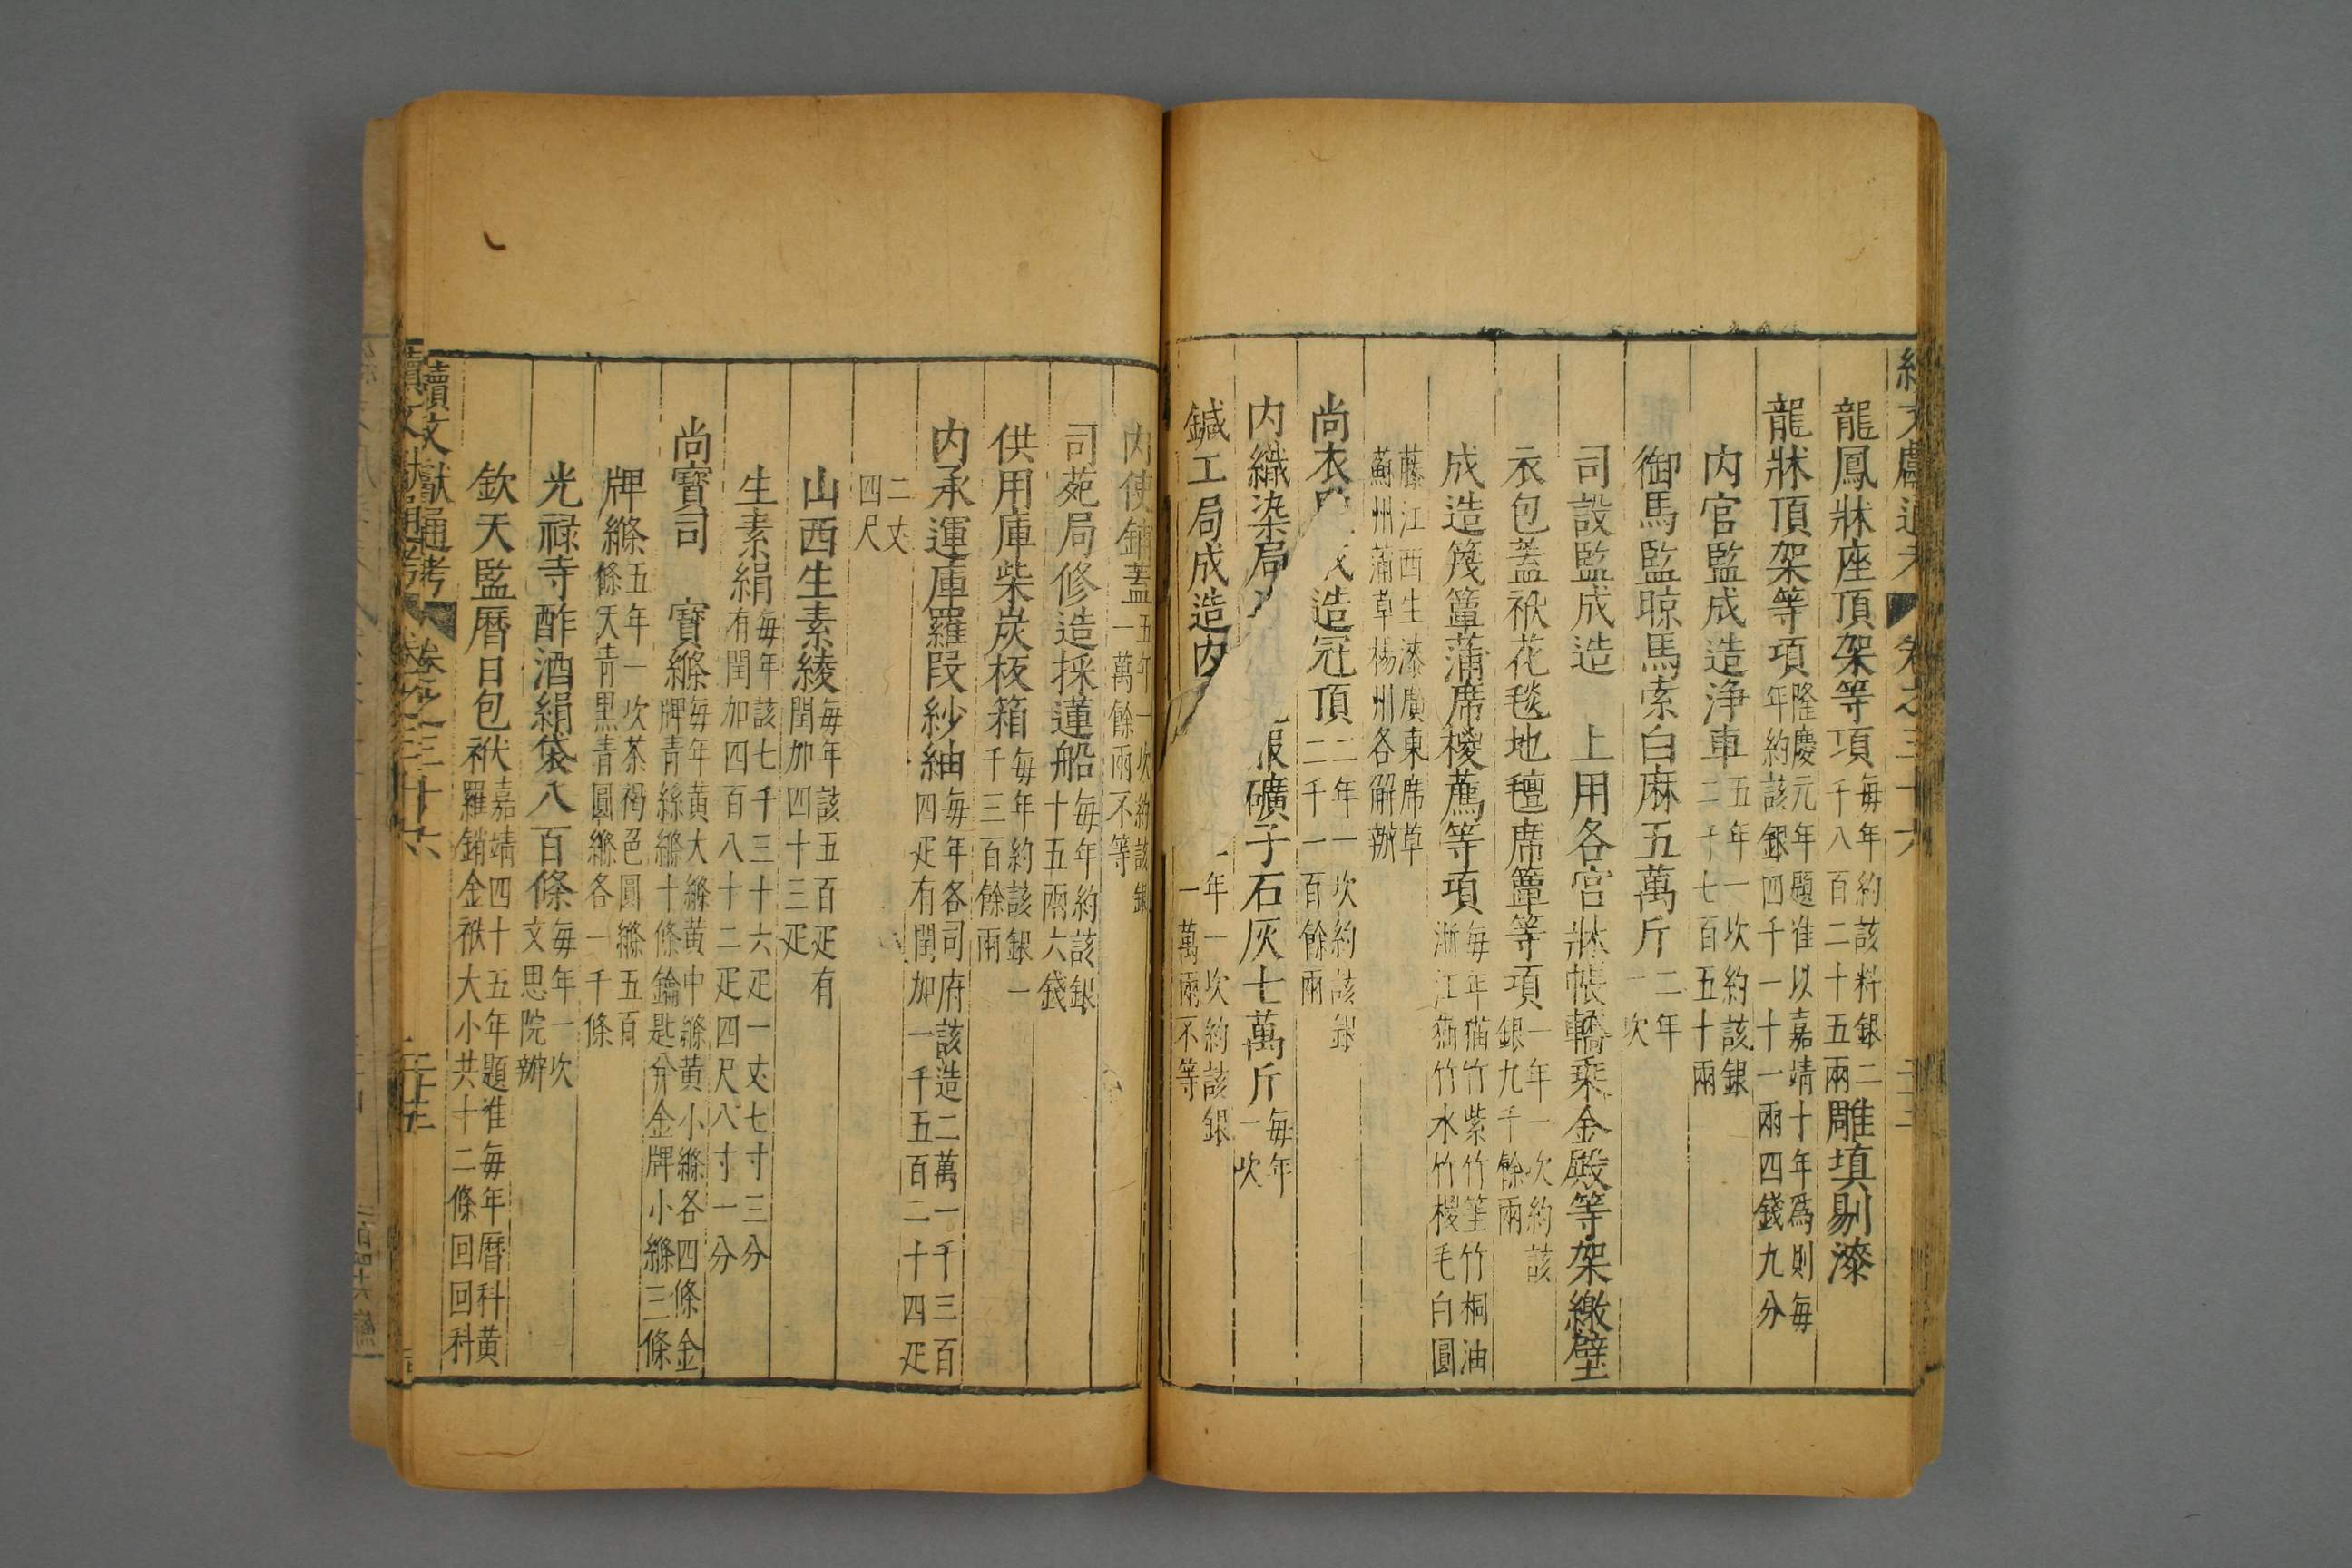 龍鳳牀座頂架等項每年約該料銀二千八百二十五兩雕填剔漆
龍牀頂架等項隆慶元年題准以嘉靖十年爲則每年約該銀四千一十一兩四錢九分
内官監成造浄車五年一次約該銀二千七百五十兩
御馬監晾馬索白麻五萬斤二年一次
司設監成造 上用各宫牀帳轎乘金殿等架繳壁
衣包蓋袱花毯地氊席簟等項一年一次約該銀九千餘兩
成造篾簟蒲席椶薦等項每年猫竹紫竹筀竹桐油浙江猫竹水竹椶毛白圓
藤江西生漆廣東席草蘇州蒲草楊州各解辦
尚衣 造冠頂二年一次約該銀二千一百餘兩
内織染局 礦子石灰七萬斤每年一次
鍼工局成造内 年一次約該銀一萬兩不等
内使鋪蓋五年一次約該銀一萬餘兩不等
司苑局修造採蓮船每年約該銀十五兩六錢
供用庫柴炭板箱每年約該銀一千三百餘兩
内承運庫羅段紗紬每年各司府該造二萬一千三百四疋有閏加一千五百二十四疋
二丈四尺
山西生素綾每年該五百疋有閏加四十三疋
生素絹每年該七千三十六疋一丈七寸三分有閏加四百八十二疋四尺八寸一分
尚寳司 寳縧每年黄大縧黄中縧黄小縧各四條金牌青絲縧十條鑰匙分金牌小縧三條
牌縧五年一次茶褐色圓縧五百條天青黑青圓縧各一千條
光禄寺酢酒絹袋八百條每年一次文思院辦
欽天監曆日包袱嘉靖四十五年題准每年曆科黄羅銷金袱大小共十二條回回科
續文獻通考 卷之三十六 二十五